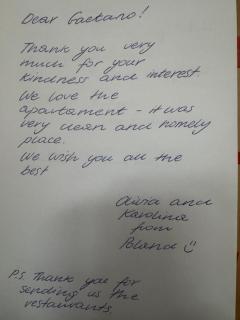 Dear Gaetano!
Thank you very
much for your
kindness and interest.
We love the
apartament - it was
very clean and homely
place.
We wish you all the
best
Olivia and
Karolina
from
Poland
P.S. Thank you for
sending us the
restaurants